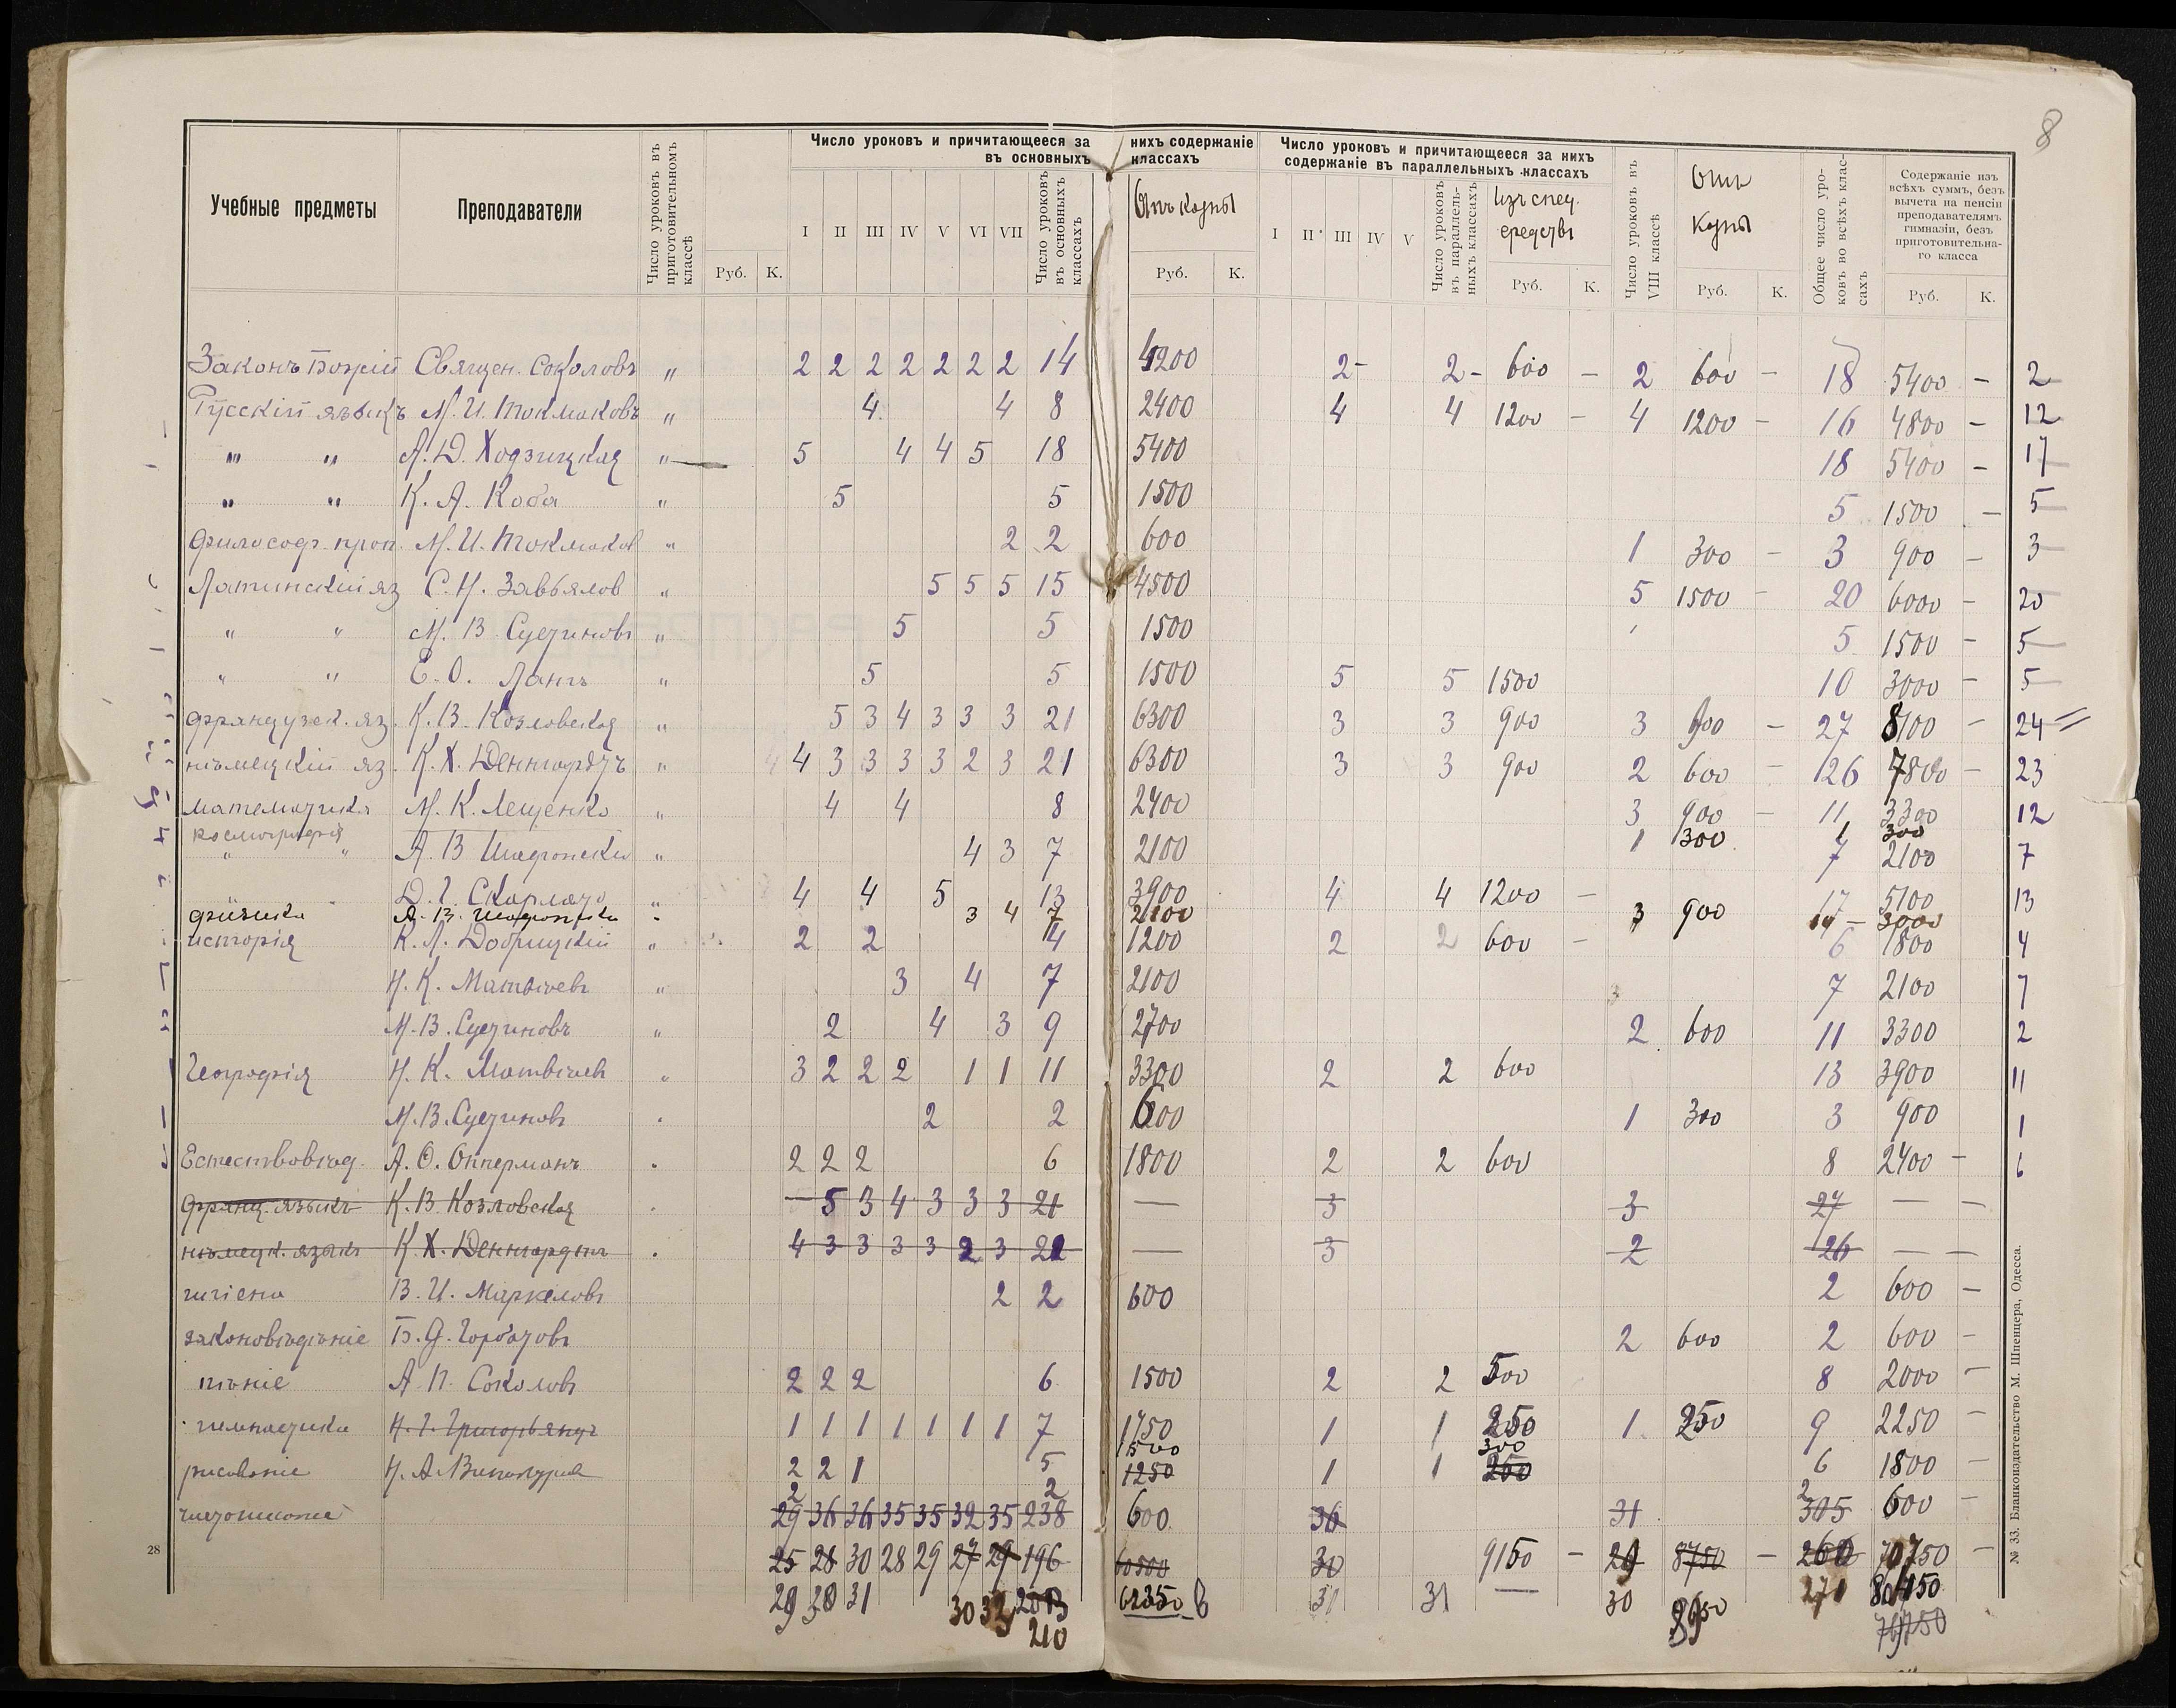 8
Учебные предметы
Преподаватели
Число уроковъ въ приготовительномъ классѣ
Руб. К.
Число уроковъ и причитающееся за нихъ содержаніе
въ основныхъ классахъ
I II III IV V VI VII
Число уроковъ въ основныхъ классахъ
Отъ казны
Руб. К.
Число уроковъ и причитающееся за нихъ
содержаніе въ параллельныхъ классахъ
I II III IV V
Число уроковъ въ параллель-
ныхъ классахъ
Изъ спец.
средствъ
Руб. К.
Число уроковъ въ VIII классѣ
Отъ
казны
Руб. К.
Общее число уро-
ковъ во всѣхъ клас-
сахъ
Содержаніе изъ
всѣхъ суммъ, безъ
вычета на пенсіи
преподавателямъ
гимназіи, безъ
приготовительна-
го класса
Руб. К.
Законъ Божій Священ. Соколовъ " 2 2 2 2 2 2 2 14 4200 2- 2- 600 - 2 600 - 18 5400 - 2
Русскій языкъ М. И. Токмаковъ " 4 4 8 2400 4 4 1200 - 4 1200 - 16 4800 - 12
" " А. Д. Ходзицкая " 5 4 4 5 18 5400 18 5400 - 17
" " К. А. Коба " 5 5 1500 5 1500 - 5
Философ. проп. М. И. Токмаков " 2 2 600 1 300 - 3 900 - 3
Латинскій яз С. Н. Завьялов " 5 5 5 15 4500 5 1500 - 20 6000 - 20
" " М. В. Сустиновъ " 5 5 1500 5 1500 - 5
" " Е. О. Лангъ " 5 5 1500 5 5 1500 10 3000 - 5
Французск. яз. К. В. Козловская " 5 3 4 3 3 3 21 6300 3 3 900 3 900 - 27 8100 - 24
нѣмецкій яз. К. Х. Деннгардтъ " 4 3 3 3 3 2 3 21 6300 3 3 900 2 600 - 26 7800 - 23
математика М. К. Лещенко " 4 4 8 2400 3 900 - 11 3300 12
космографія 1 300 1 300
" " А. В. " 4 3 7 2100 7 2100 7
Д. Г. Скарлато " 4 4 5 13 3900 4 4 1200 - 17 5100 13
физика А. В. 3 4 7 2100 3 900 10 - 3000
исторія К. Л. Добрицкій " 2 2 4 1200 2 2 600 - 6 1800 4
Н. К. Матвѣевъ " 3 4 7 2100 7 2100 7
М. В. Сустиновъ " 2 4 3 9 2700 2 600 11 3300 2
Географія Н. К. Матвѣевъ " 3 2 2 2 1 1 11 3300 2 2 600 13 3900 11
М. В. Сустиновъ 2 2 600 1 300 3 900 1
Естествовѣд. А. О. Опперманъ 2 2 2 6 1800 2 2 600 8 2400 - 6
Франц. языкъ К. В. Козловская — 5 3 4 3 3 3 21 — 3 3 27 — —
нѣмецк. языкъ К. Х. Деннгардтъ 4 3 3 3 3 2 3 21 — 3 2 26 — —
гигіена В. И. Маркеловъ 2 2 600 2 600 -
законовѣдѣніе Б. Я. Горбатовъ 2 600 2 600 -
пѣніе А. П. Соколовъ 2 2 2 6 1500 2 2 500 8 2000 -
гимнастика Н. Г. Григорьянцъ 1 1 1 1 1 1 1 7 1750 1 1 250 1 250 9 2250 -
1500 300
рисованіе Н. А. 2 2 1 5 1250 1 1 250 6 1800 -
2 2 2
чистописаніе 600 600 -
29 36 36 35 35 32 35 238 36 31 305
25 28 30 28 29 27 29 196 60500 30 9150 - 29 8750 - 260 70750 -
29 30 31 30 32 62350 31 31 — 30 8950 271 80450
210 79750
28
№ 33. Бланкоиздательство М. Шпенцера, Одесса.